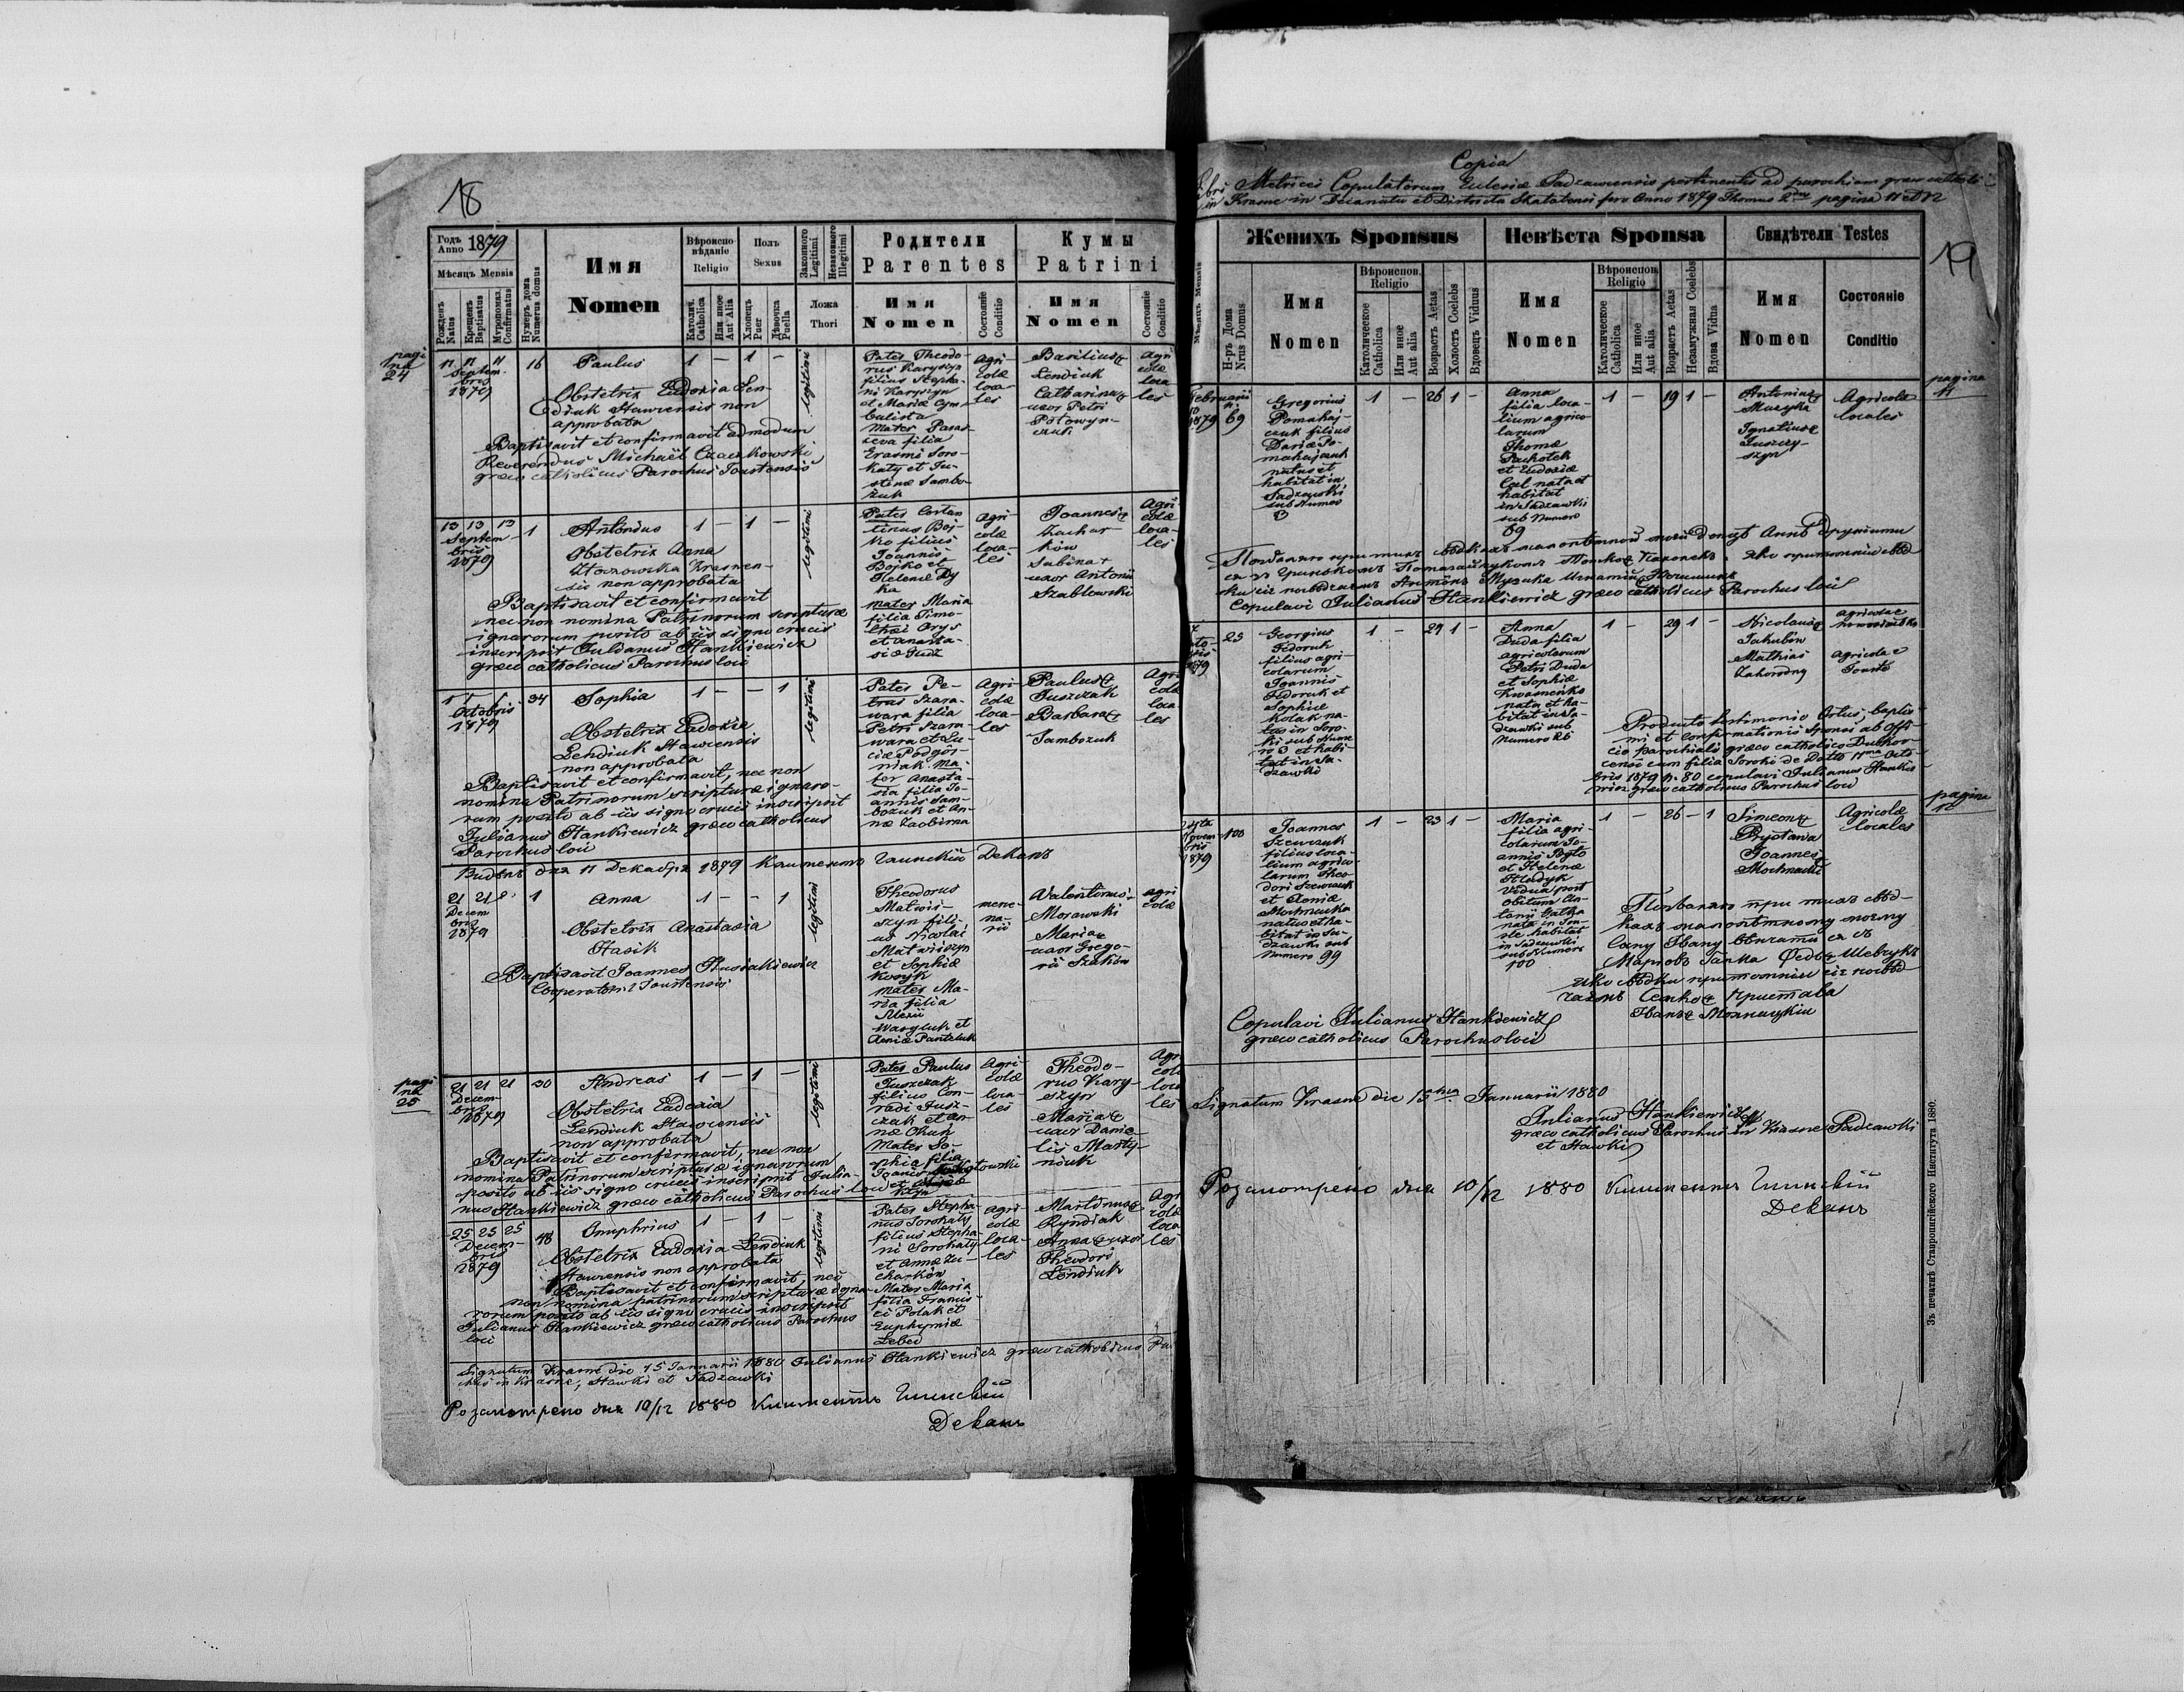 18
Годъ Anno 1879
Мѣсяцъ Mensis
Рожденъ Natus
Крещенъ Baptisatus
Мvропомаз. Confirmatus
Нумеръ дома Numerus domus
Имя
Nomen
Вѣроиспо-
вѣданіе
Religio
Католич. Catholica
Или иное Aut Alia
Полъ
Sexus
Хлопецъ Puer
Дѣвочка Puella
Законного Legitimi
Незаконного Illegitimi
Ложа
Thori
Родители
Parentes
Имя
Nomen
Состояніе Conditio
Кумы
Patrini
Имя
Nomen
Состояніе Conditio
pagi
na
24
11 11 11
Septem-
bris
1879
16
Paulus
1 — 1 —
legitimi
Obstetrix Eudoxia Len-
diuk Stawensis non
approbata
Baptisavit et confirmavit admodum
Reverendus Michaël Czaczkowski
graeco catholicus Parochus Toustensis
Pater Theodo-
rus Karyszyn
filius Stepha-
ni Karyszyn
et Mariae Cym-
balista
Mater Paras-
ceva filia
Erasmi Soro-
katy et Ju-
stinae Sambo-
zuk
Agri-
colae
loca-
les
Basilius+
Lendiuk
Catharina+
uxor Petri
Potowyn-
czuk
Agri
colae
loca
les
13 13 13
Septem-
bris
1879
1
Antonius
1 — 1 —
legitimi
Obstetrix Anna
Ztoczowska Krasnen-
sis non approbata
Baptisavit et confirmavit
nec non nomina Patrinorum scripturae
ignarorum posito ab iis signo crucis
inscripsit Julianus Hankiewicz
graeco catholicus Parochus loci
Pater Costan
tinus Boj-
ko filius
Joannis
Bojko et
Helenae Dy
ka
Mater Maria
filia Timo-
thei Orys
et Anasta-
siae Gudz
Agri-
colae
loca-
les
Joannes+
Zachar-
ków
Sabina+
uxor Antonii
Szablowski
Agri
colae
loca-
les
1 1 1
Octobris
1879
34
Sophia
1 — — 1
legitimi
Obstetrix Eudoxia
Lendiuk Stawensis
non approbata
Baptisavit et confirmavit, nec non
nomina Patrinorum scripturae ignaro-
rum posito ab iis signo crucis inscripsit
Julianus Hankiewicz graeco catholicus
Parochus loci
Pater Pe-
trus Szara-
wara filia
Petri Szara-
wara et Lu-
ciae Podgór-
niak. Ma-
ter Anasta-
sia filia Jo-
annis Sam-
bozuk et An-
nae Zaobirna
Agri-
colae
loca-
les
Paulus+
Juszczak
Barbara+
Sambozuk
Agri
colae
loca-
les
Видѣлъ дня 11 Декабра 1879 Климентъ Глинскій Деканъ
21 21
Decem
bris
1879
1
Anna
1 — — 1
legitimi
Obstetrix Anastasia
Hasik
Baptisavit Joannes
Cooperator Toustensis
Theodorus
Matwis-
szyn fili-
us Nicolai
Matwiiszyn
et Sophiae
Kosyk
mater Ma-
ria filia
Alexii
Wasyluk et
Aeniae Panteluk
merce-
na-
rii
Valentinus+
Morawski
Maria+
uxor Grego-
rii Szaków
agri
colae
pagi
na
25
21 21 21
Decem-
bris
1879
30
Andreas
1 — 1 —
legitimi
Obstetrix Eudoxia
Lendiuk Stawensis
non approbata
Baptisavit et confirmavit, nec non
nomina Patrinorum scripturae ignarorum
posito ab iis signo crucis inscripsit Julia-
nus Hankiewicz graeco catholicus Parochus loci
Pater Paulus
Juszczak
filius Con-
radi Jusz-
czak et An-
nae Okuń
Mater So-
phia filia
Agri-
colae
loca-
les
Theodo-
rus Kary-
szyn
Maria+
uxor Danie-
lis Marty-
niuk
Agri
colae
loca
les
25 25 25
Decem-
bris
1879
48
Onuphrius
1 — 1 —
legitimi
Obstetrix Eudoxia Lendiuk
Stawensis non approbata
Baptisavit et confirmavit, nec
non nomina patrinorum scripturae igna-
rorum posito ab iis signo crucis inscripsit
Julianus Hankiewicz graeco catholicus Parochus
loci
Pater Stepha-
nus Sorohaty
filius Stepha-
ni Sorohaty
et Annae Za-
charków
Mater Maria
filia Francis-
ci Polak et
Euphymiae
Lebed
Agri-
colae
loca-
les
Martinus+
Ryndiak
Anna+ uxor
Theodori
Lendiuk
Agri
colae
loca
les
Signatum Krasne die 15 Januarii 1880 Julianus Hankiewicz graeco catholicus Pa
chus in Krasne, Stawki et Sadzawki
Розсмотрено дня 10/12 1880 Климентъ Глинскій
Деканъ
Copia
Libri Metrices Copulatorum Eclesiae Sadzawcensis pertinentis ad parochiam graeco catholi-
in Krasne in Decanatu et Districtu Skalatensi pro Anno 1879 Thomus 2dus pagina 11 et 12
19
Мѣсяцъ Mensis
Н-ръ Дома Nrus Domus
Женихъ Sponsus
Имя
Nomen
Вѣроиспов.
Religio
Католическое Catholica
Или иное Aut alia
Возрастъ Aetas
Холостъ Coelebs
Вдовецъ Viduus
Невѣста Sponsa
Имя
Nomen
Вѣроиспов.
Religio
Католическое Catholica
Или иное Aut alia
Возрастъ Aetas
Незамужная Coelebs
Вдова Vidua
Свидѣтели Testes
Имя
Nomen
Состояніе
Conditio
pagina
11
Februarii
10
1879
69
Gregorius
Pomahaj-
czuk filius
Dariae Po-
mahajczuk
natus et
habitat in
Sadzawki
sub Numero
1 — 26 1 —
Anna
filia loca-
lium agrico-
larum
Thomae
Pachotek
et Eudoxiae
Cal nata et
habitat
in Sadzawki
sub Numero
69
1 — 19 1 —
Antonius+
Muzyka
Ignatius+
Juszczy-
szyn
Agricolae
locales
Copulavi Julianus Hankiewicz graeco catholicus Parochus loci
1879
25
Georgius
Fedoruk
filius agri-
colarum
Joannis
Fedoruk et
Sophiae
Kolak na-
tus in Soro-
ki sub Nume
ro 3 et habi-
tat in Sa-
dzawki
1 — 29 1 —
Anna
Duda filia
agricolarum
Petri Duda
et Sophiae
Kwasneńko
nata et ha-
bitat in Sa-
dzawki sub
Numero 26
1 — 29 1 —
Nicolaus+
Jakubów
Mathias
Zahorodny
agricolae
agricolae
Touste
Producto testimonio Ortus, baptis-
mi et confirmationis Sponsi ab offi-
cio parochiali graeco catholico Dubkov-
censi cum filia Soroki de Datto 11ma Octo-
bris 1879 N. 80 copulavi Julianus Hankie-
wicz graeco catholicus Parochus loci
pagina
12
Novem-
bris
1879
100
Joannes
Szewczuk
filius loca-
lium agrico-
larum Theo-
dori Szewczuk
et Xeniae
Mochnaczka
natus et ha-
bitat in Sa-
dzawki sub
Numero 99
1 — 23 1 —
Maria
filia agri-
colarum Jo-
annis
et Helenae
Hladyk
Vidua post
obitum An-
tonii Galka
nata in Tou-
ste habitat
in Sadzawki
sub Numero
100
1 — 26 — 1
Simeon+
Prystawa
Joannes
Mochnacki
Agricolae
locales
Позваляю при тихъ свѣд-
кахъ малолѣтному моему
сыну Ивану вѣнчати ся съ
Марıовъ Галка Федь+ Шевчукъ
яко свѣдки притомніи сіе посвѣд-
чаємъ Семко+ Пристава
Иванъ+ Мохнацкій
Copulavi Julianus Hankiewicz
graeco catholicus Parochus loci
Signatum Krasne die 15ta Januarii 1880
Julianus Hankiewicz
graeco catholicus Parochus in Krasne Sadzawki
et Stawki
Розсмотрено дня 10/12 1880 Климентъ Глинскій
Деканъ
Зъ печатнѣ Ставропигійского Института 1880.